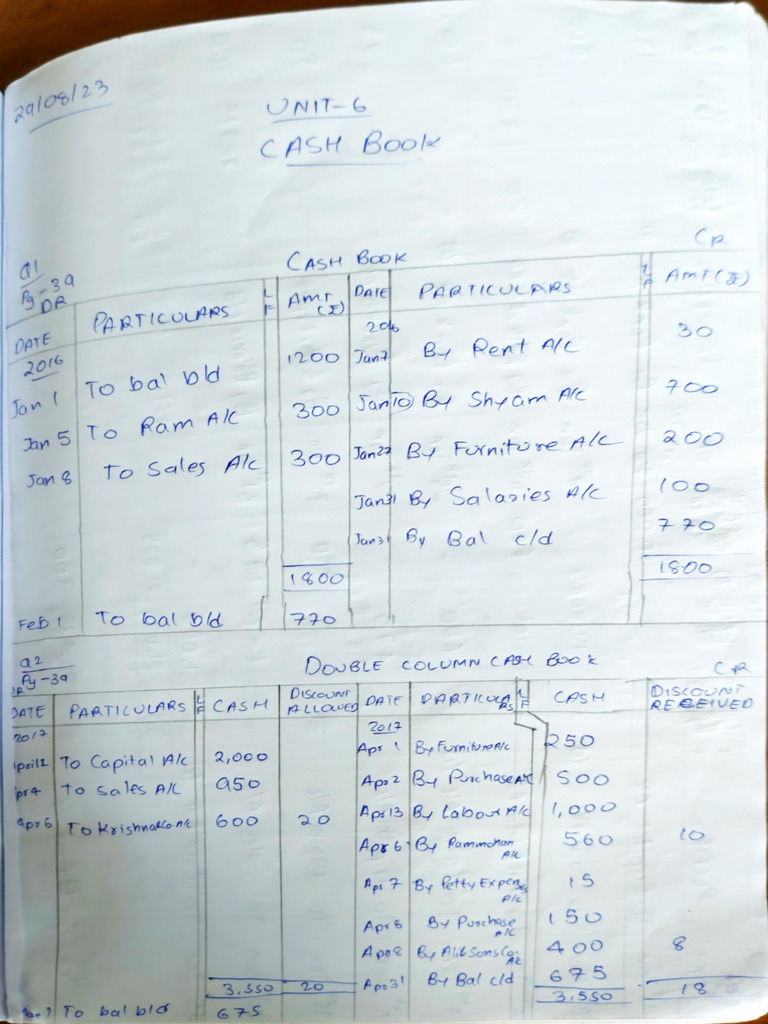 29/08/23
UNIT-6
CASH BOOK
Q1
Pg-39
CASH BOOK
DR CR
DATE PARTICULARS LF AMT (₹) DATE PARTICULARS LF AMT (₹)
2016 2016
Jan 1 To bal b/d 1200 Jan 7 By Rent A/c 30
Jan 5 To Ram A/c 300 Jan 10 By Shyam A/c 700
Jan 8 To Sales A/c 300 Jan 27 By Furniture A/c 200
Jan 31 By Salaries A/c 100
Jan 31 By Bal c/d 770
1800 1800
Feb 1 To bal b/d 770
Q2
Pg-39
DOUBLE COLUMN CASH BOOK
DR CR
DATE PARTICULARS LF CASH DISCOUNT ALLOWED DATE PARTICULARS LF CASH DISCOUNT RECEIVED
2017 2017
To Capital A/c 2,000 Apr 1 By Furniture A/c 250
To Sales A/c 950 Apr 2 By Purchase A/c 500
Apr 6 To Krishna&Co. A/c 600 20 Apr 13 By Labour A/c 1,000
Apr 6 By Rammohan A/c 560 10
Apr 7 By Petty Expenses A/c 15
Apr 8 By Purchase A/c 150
Apr 8 By Ali&SonsCo. A/c 400 8
Apr 31 By Bal c/d 675
3,550 20 3,550 18
To bal b/d 675